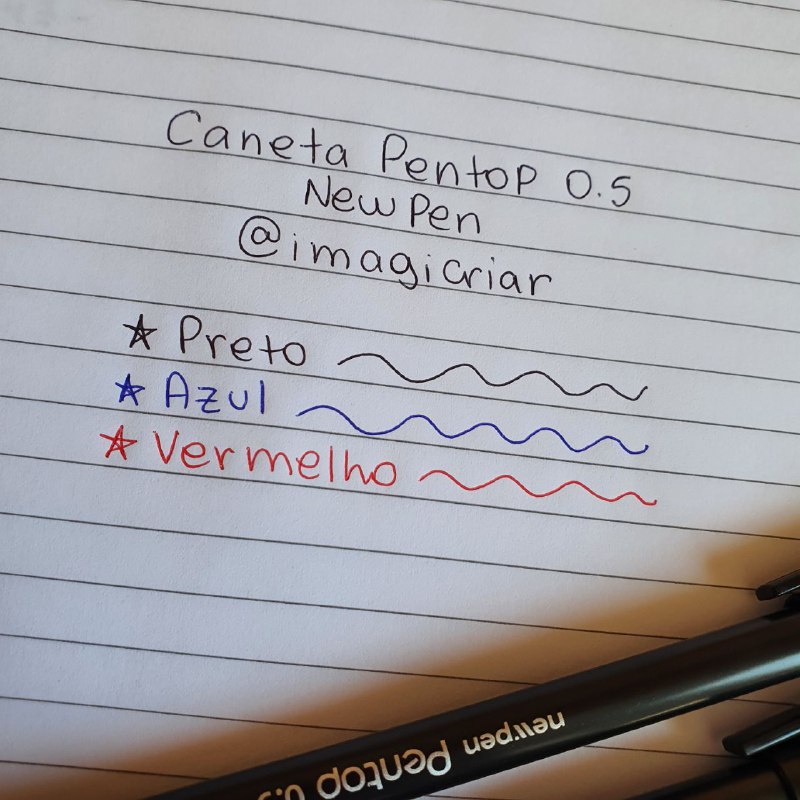 Caneta Pentop 0.5
New Pen
@imagicriar
Preto
Azul
Vermelho
newpen Pentop 0.5